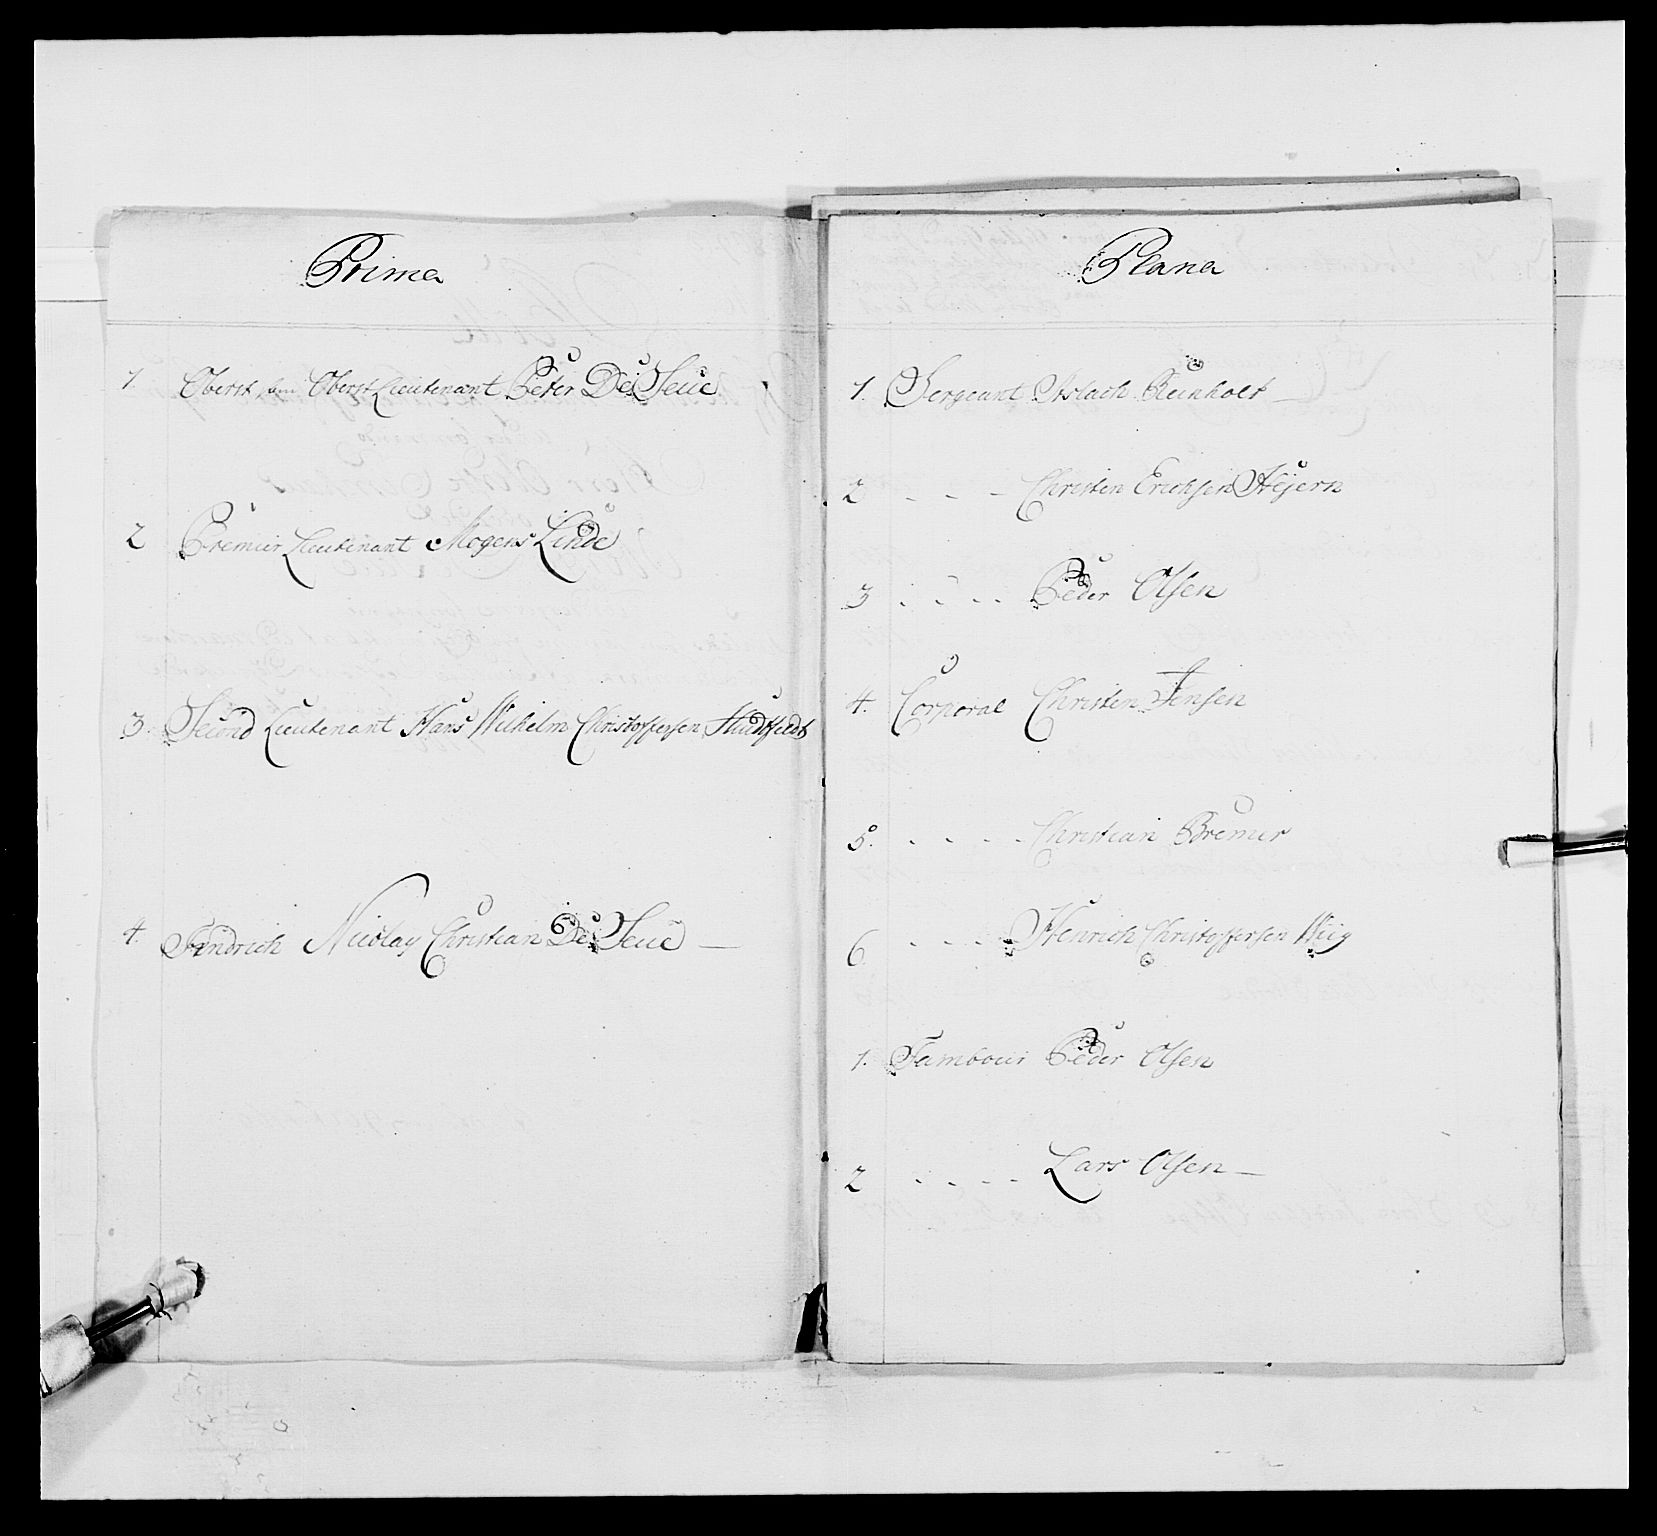 Prima
1. Oberst, som Oberst Lieutenant Peter De Seue
2 Premier Lieutenant Mogens Linde
3. Second Lieutenant Hans Wilhelm Christoffersen Huidtfeldt
4. Fendrich Nicolay Christian De Seue —
Plana
1. Sergeant Aslach Reinholt —
2 - - - Christen Erichsen Hejern
3 - - - - Peder Olsen
4. Corporal Christen Jensen
5. - - - - Christian Bremer
6. - - - - Henrich Christoffersen Wiig
1. Tambour Peder Olsen
2 - - - - Lars Olsen —